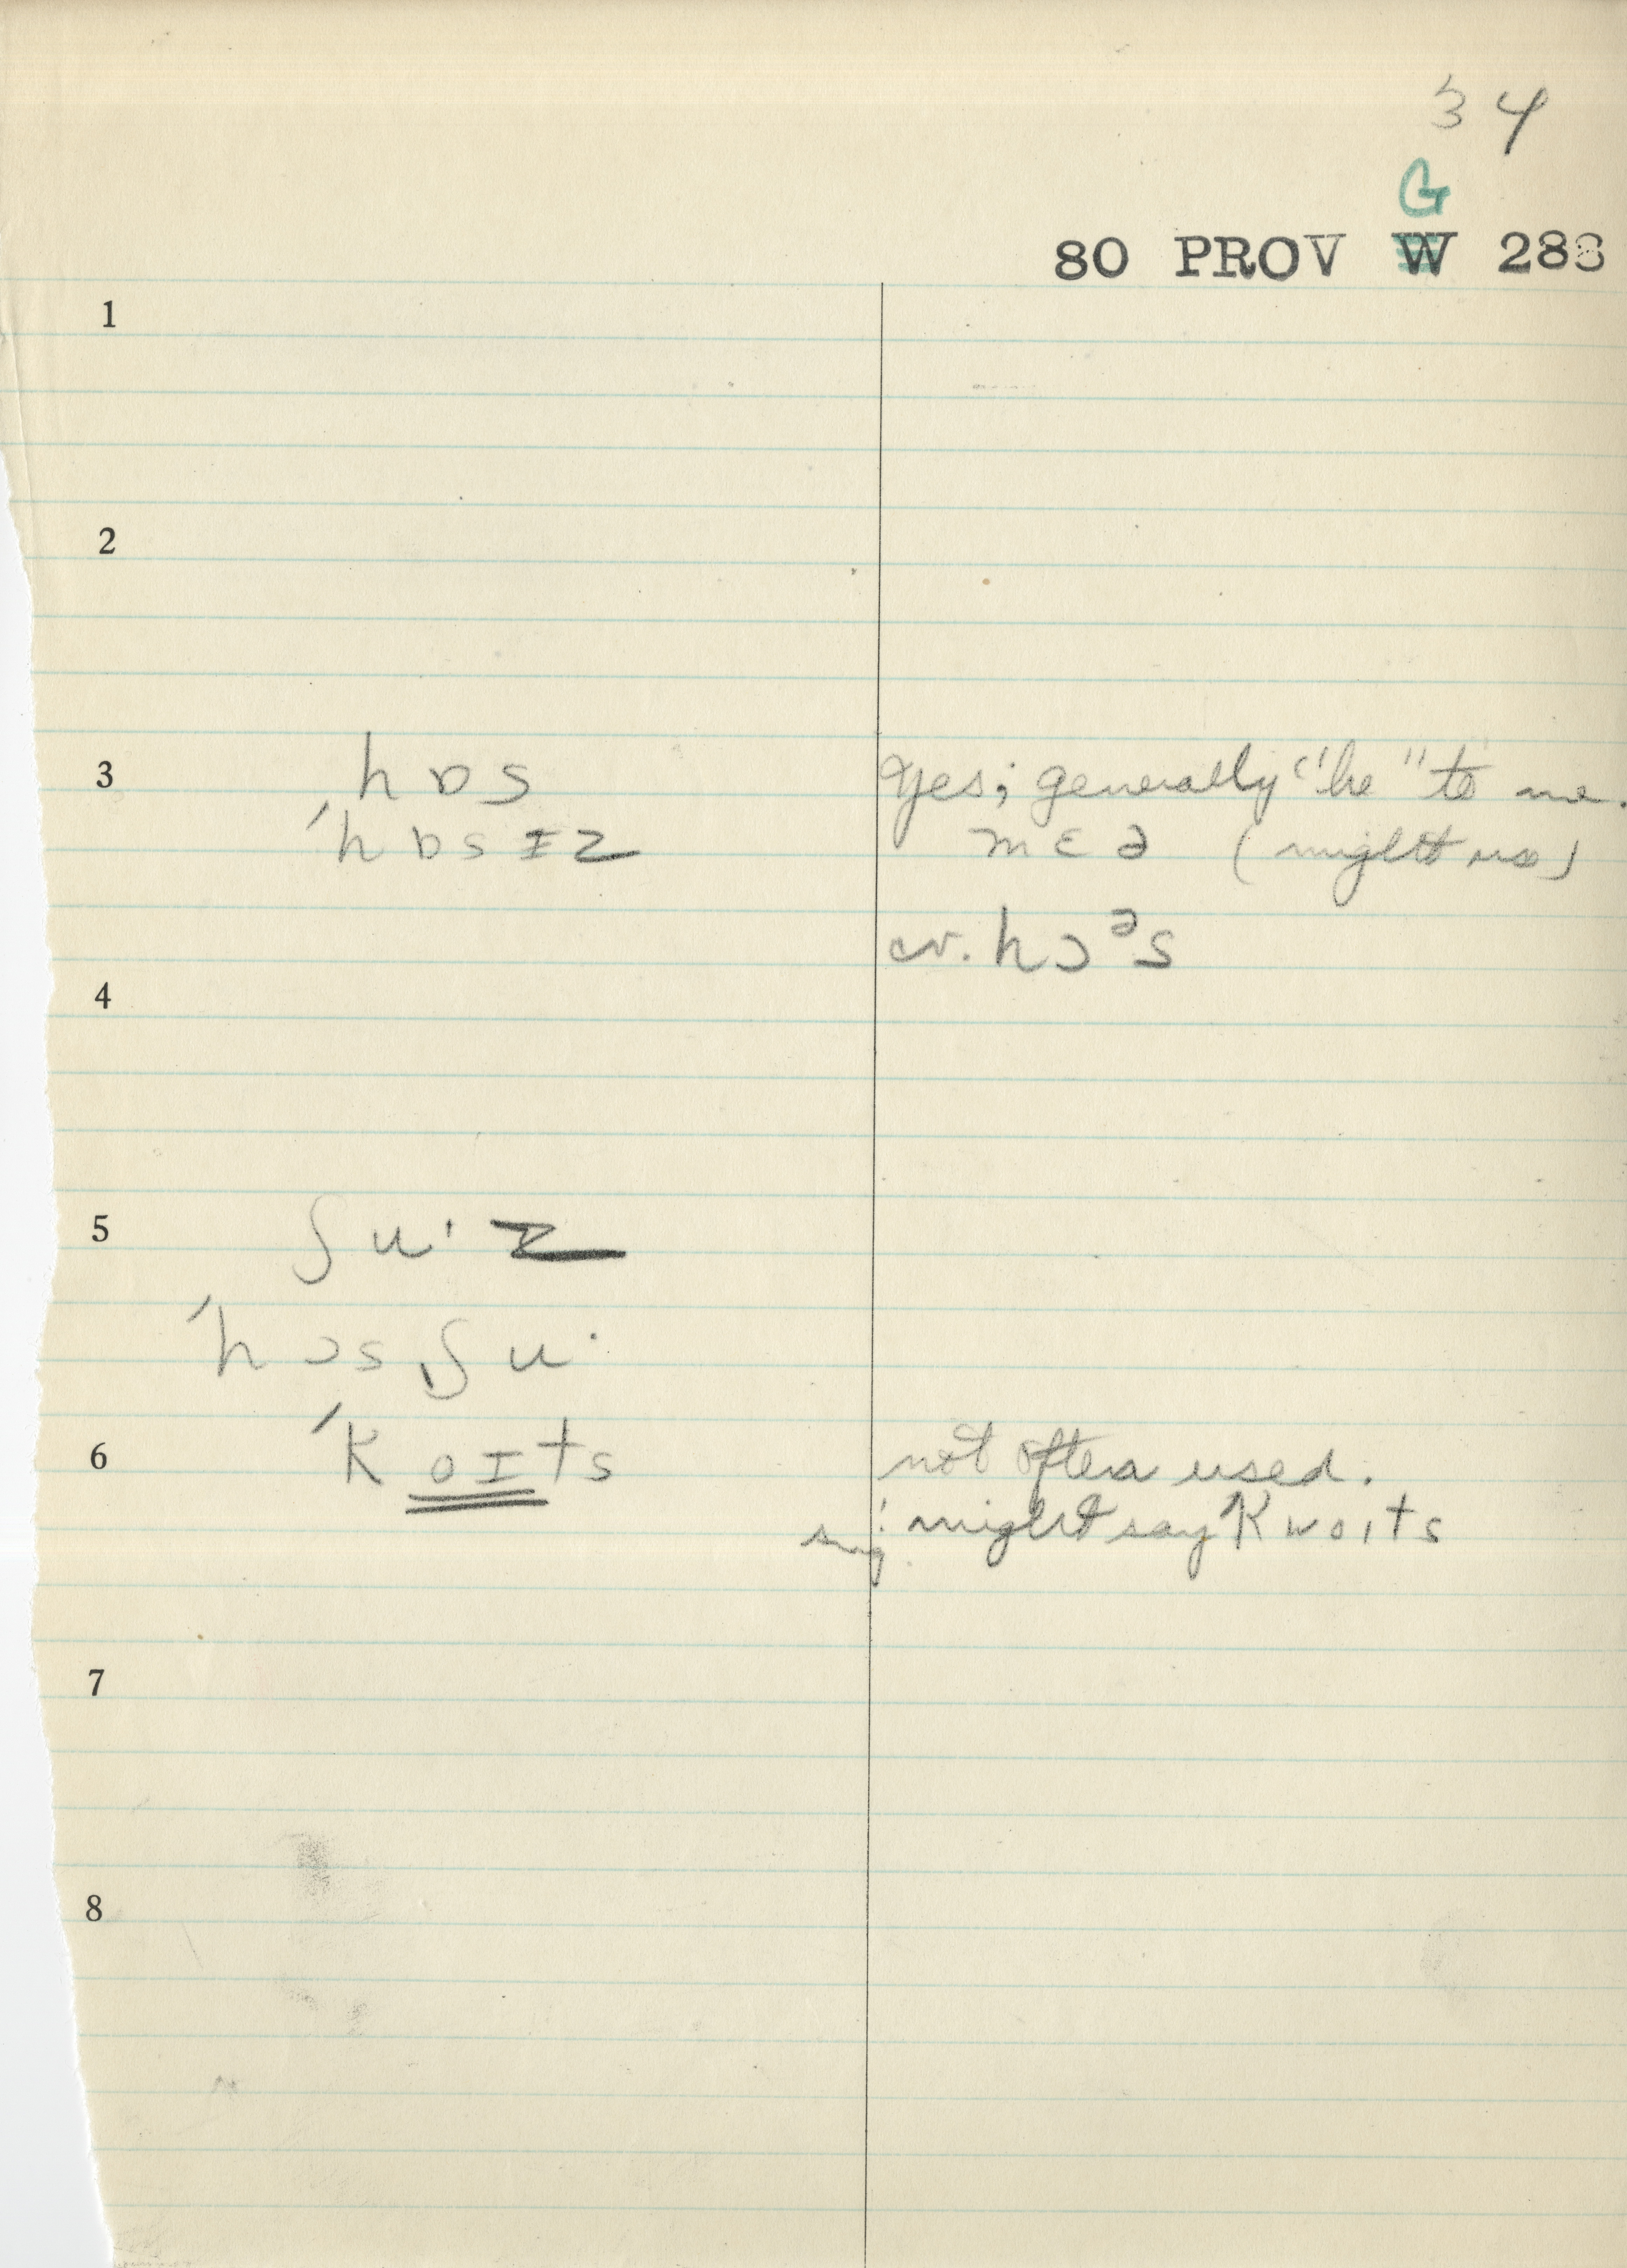 34
G
80 PROV W 288
1
2
3 hɒs Yes; generally "he" to me.
ˈhɒsɪz mɛə (might use)
cv. hɔᵊs
4
5 ʃuˑz
ˈhɔsˌʃuˑ
6 ˈkoɪts not often used.
sug: might say kwoɪts
7
8